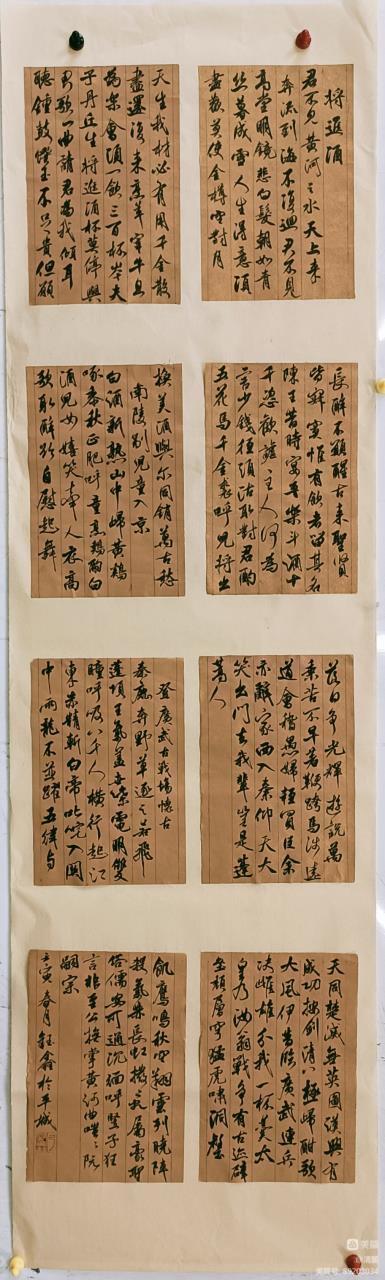 將進酒
君不見黄河之水天上来
奔流到海不復迴君不見
高堂明鏡悲白髮朝如青
丝暮成雪人生得意須
盡歡莫使金樽空對月
天生我材必有用千金散
盡還復来烹羊宰牛且
為樂會須一飲三百杯岑夫
子丹丘生将進酒杯莫停與
君歌一曲請君為我傾耳
聽鐘鼓饌玉不足貴但願
長醉不願醒古来聖賢
皆寂寞惟有飲者留其名
陳王昔時宴平樂斗酒十
千恣歡謔主人何為
言少錢徑須沽取對君酌
五花馬千金裘呼兒将出
換美酒與尔同銷萬古愁
南陵别兒童入京
白酒新熟山中歸黄鷄
啄黍秋正肥呼童烹鷄酌白
酒兒女嬉笑牽人衣高
歌取醉欲自慰起舞
落日争光輝遊説萬
乘苦不早著鞭跨馬涉遠
道會稽愚婦輕買臣余
亦辭家西入秦仰天大
笑出門去我輩豈是蓬
蒿人
登廣武古戰場懷古
秦鹿奔野草逐之若飛
蓬項王氣蓋世紫電明雙
瞳呼吸八千人横行起江
東赤精斬白帝叱咤入關
中兩龍不並躍五緯與
天同楚滅無英圖漢興有
成功按劍清八極歸酣歌
大風伊昔臨廣武連兵
决雌雄分我一杯羹太
皇乃汝翁戰争有古迹壁
壘頹層穹猛虎嘯洞壑
飢鷹鳴秋空翔雲列曉陣
殺氣赫長虹撥亂屬豪聖
俗儒安可通沉湎呼豎子狂
言非至公撫掌黄河曲嗤嗤阮
嗣宗
壬寅春月鈺鑫於平城
美篇
美篇号 89208034